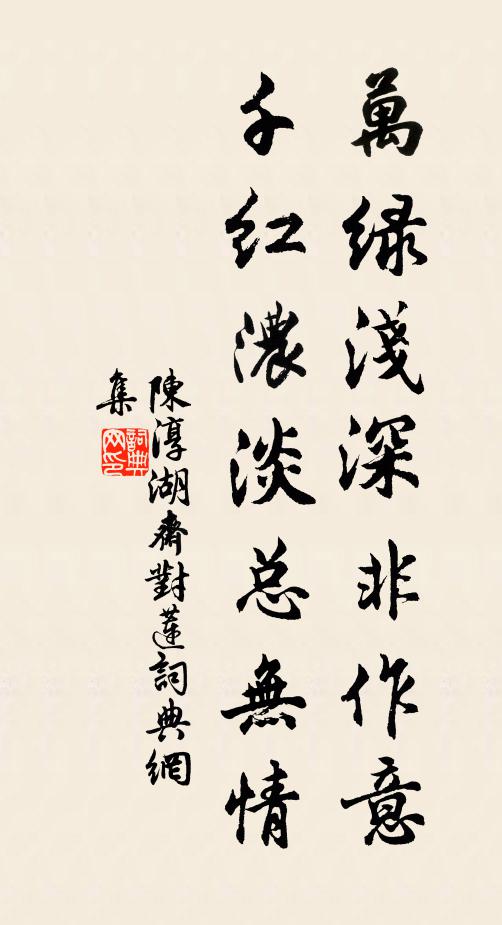 萬緑淺深非作意
千红濃淡总無情
陳淳湖齋對蓮詞典網
集
詞典网印